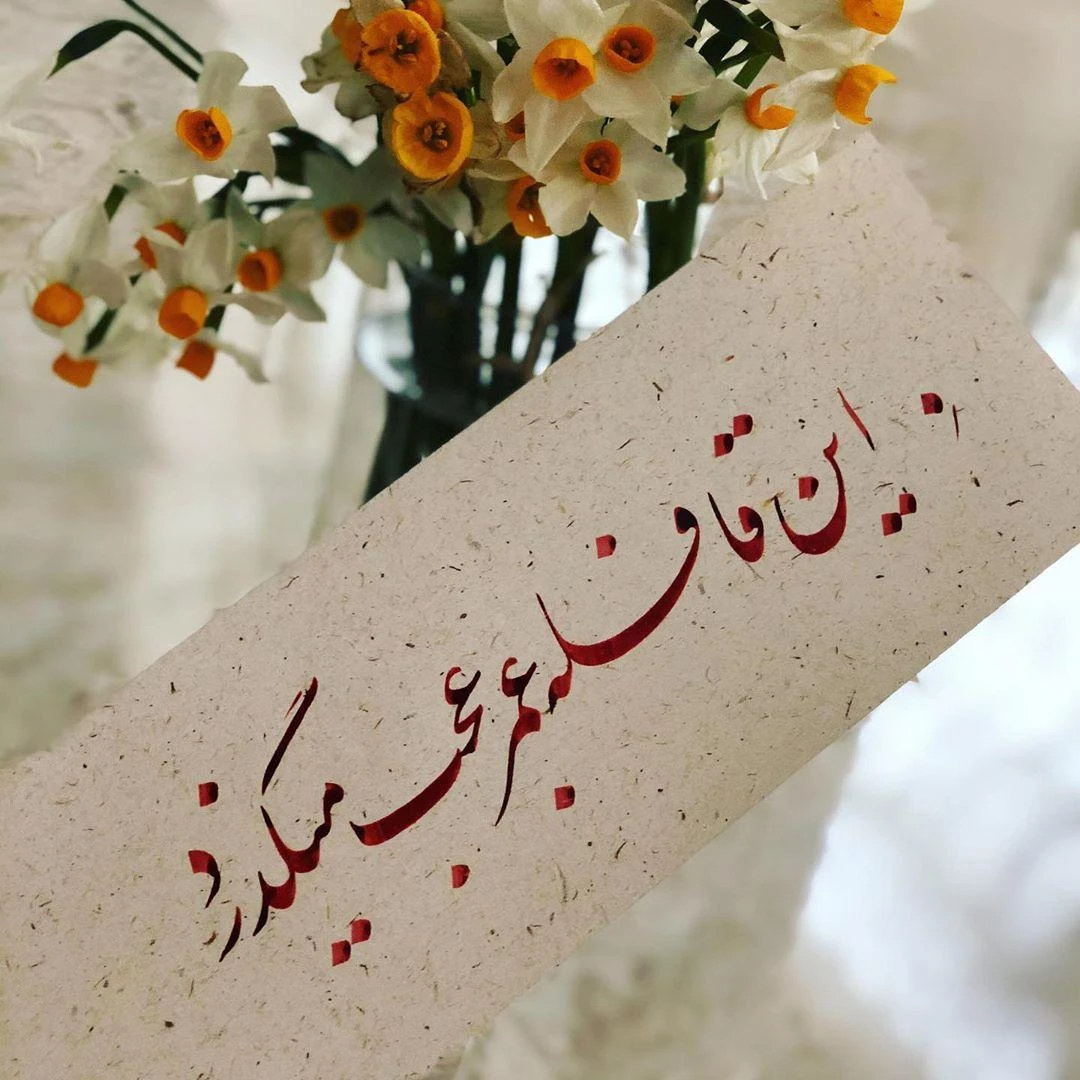 این قافله عمر عجب میگذرد